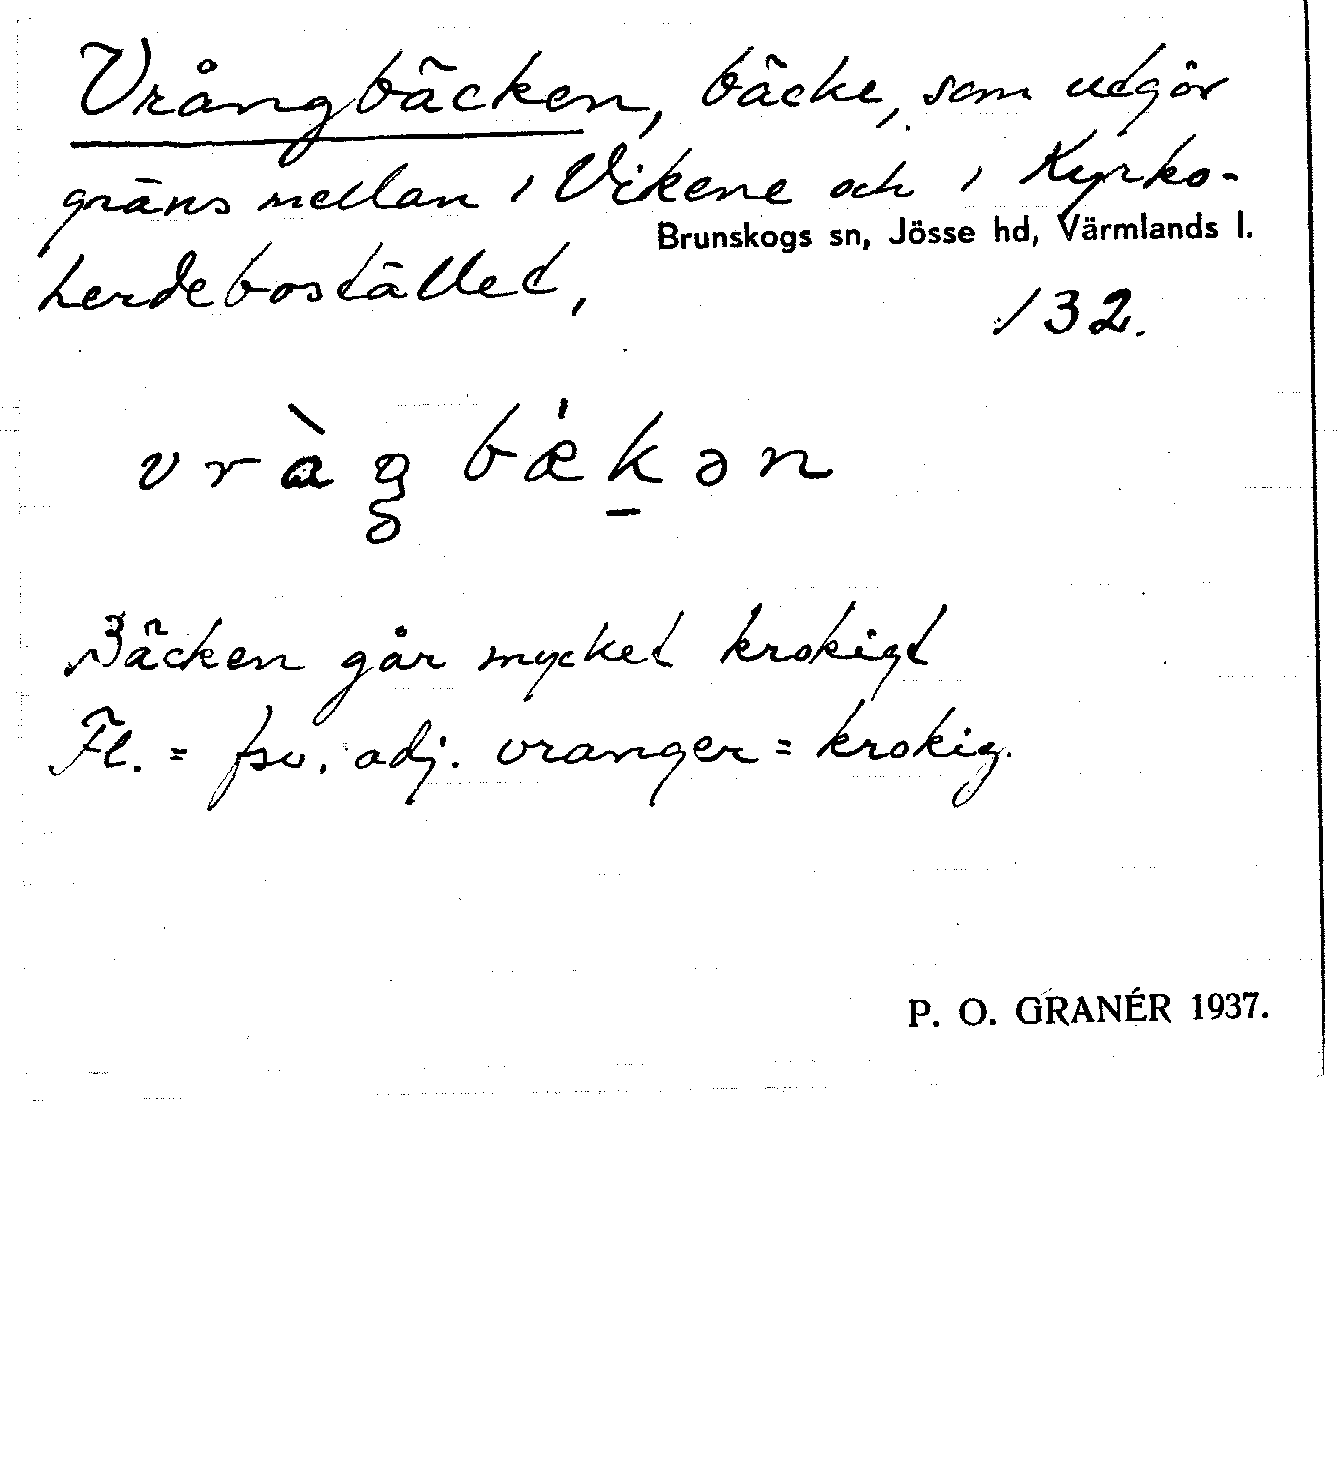 Vrångbäcken, bäcke, som utgör
gräns mellan 1 Vikene och 1 Kyrko-
Brunskogs sn, Jösse hd, Värmlands l.
herdebostället,
132.
bǽkən
Bäcken går mycket krokigt
Fl. = fsv. adj. vranger = krokig.
P. O. GRANÉR 1937.